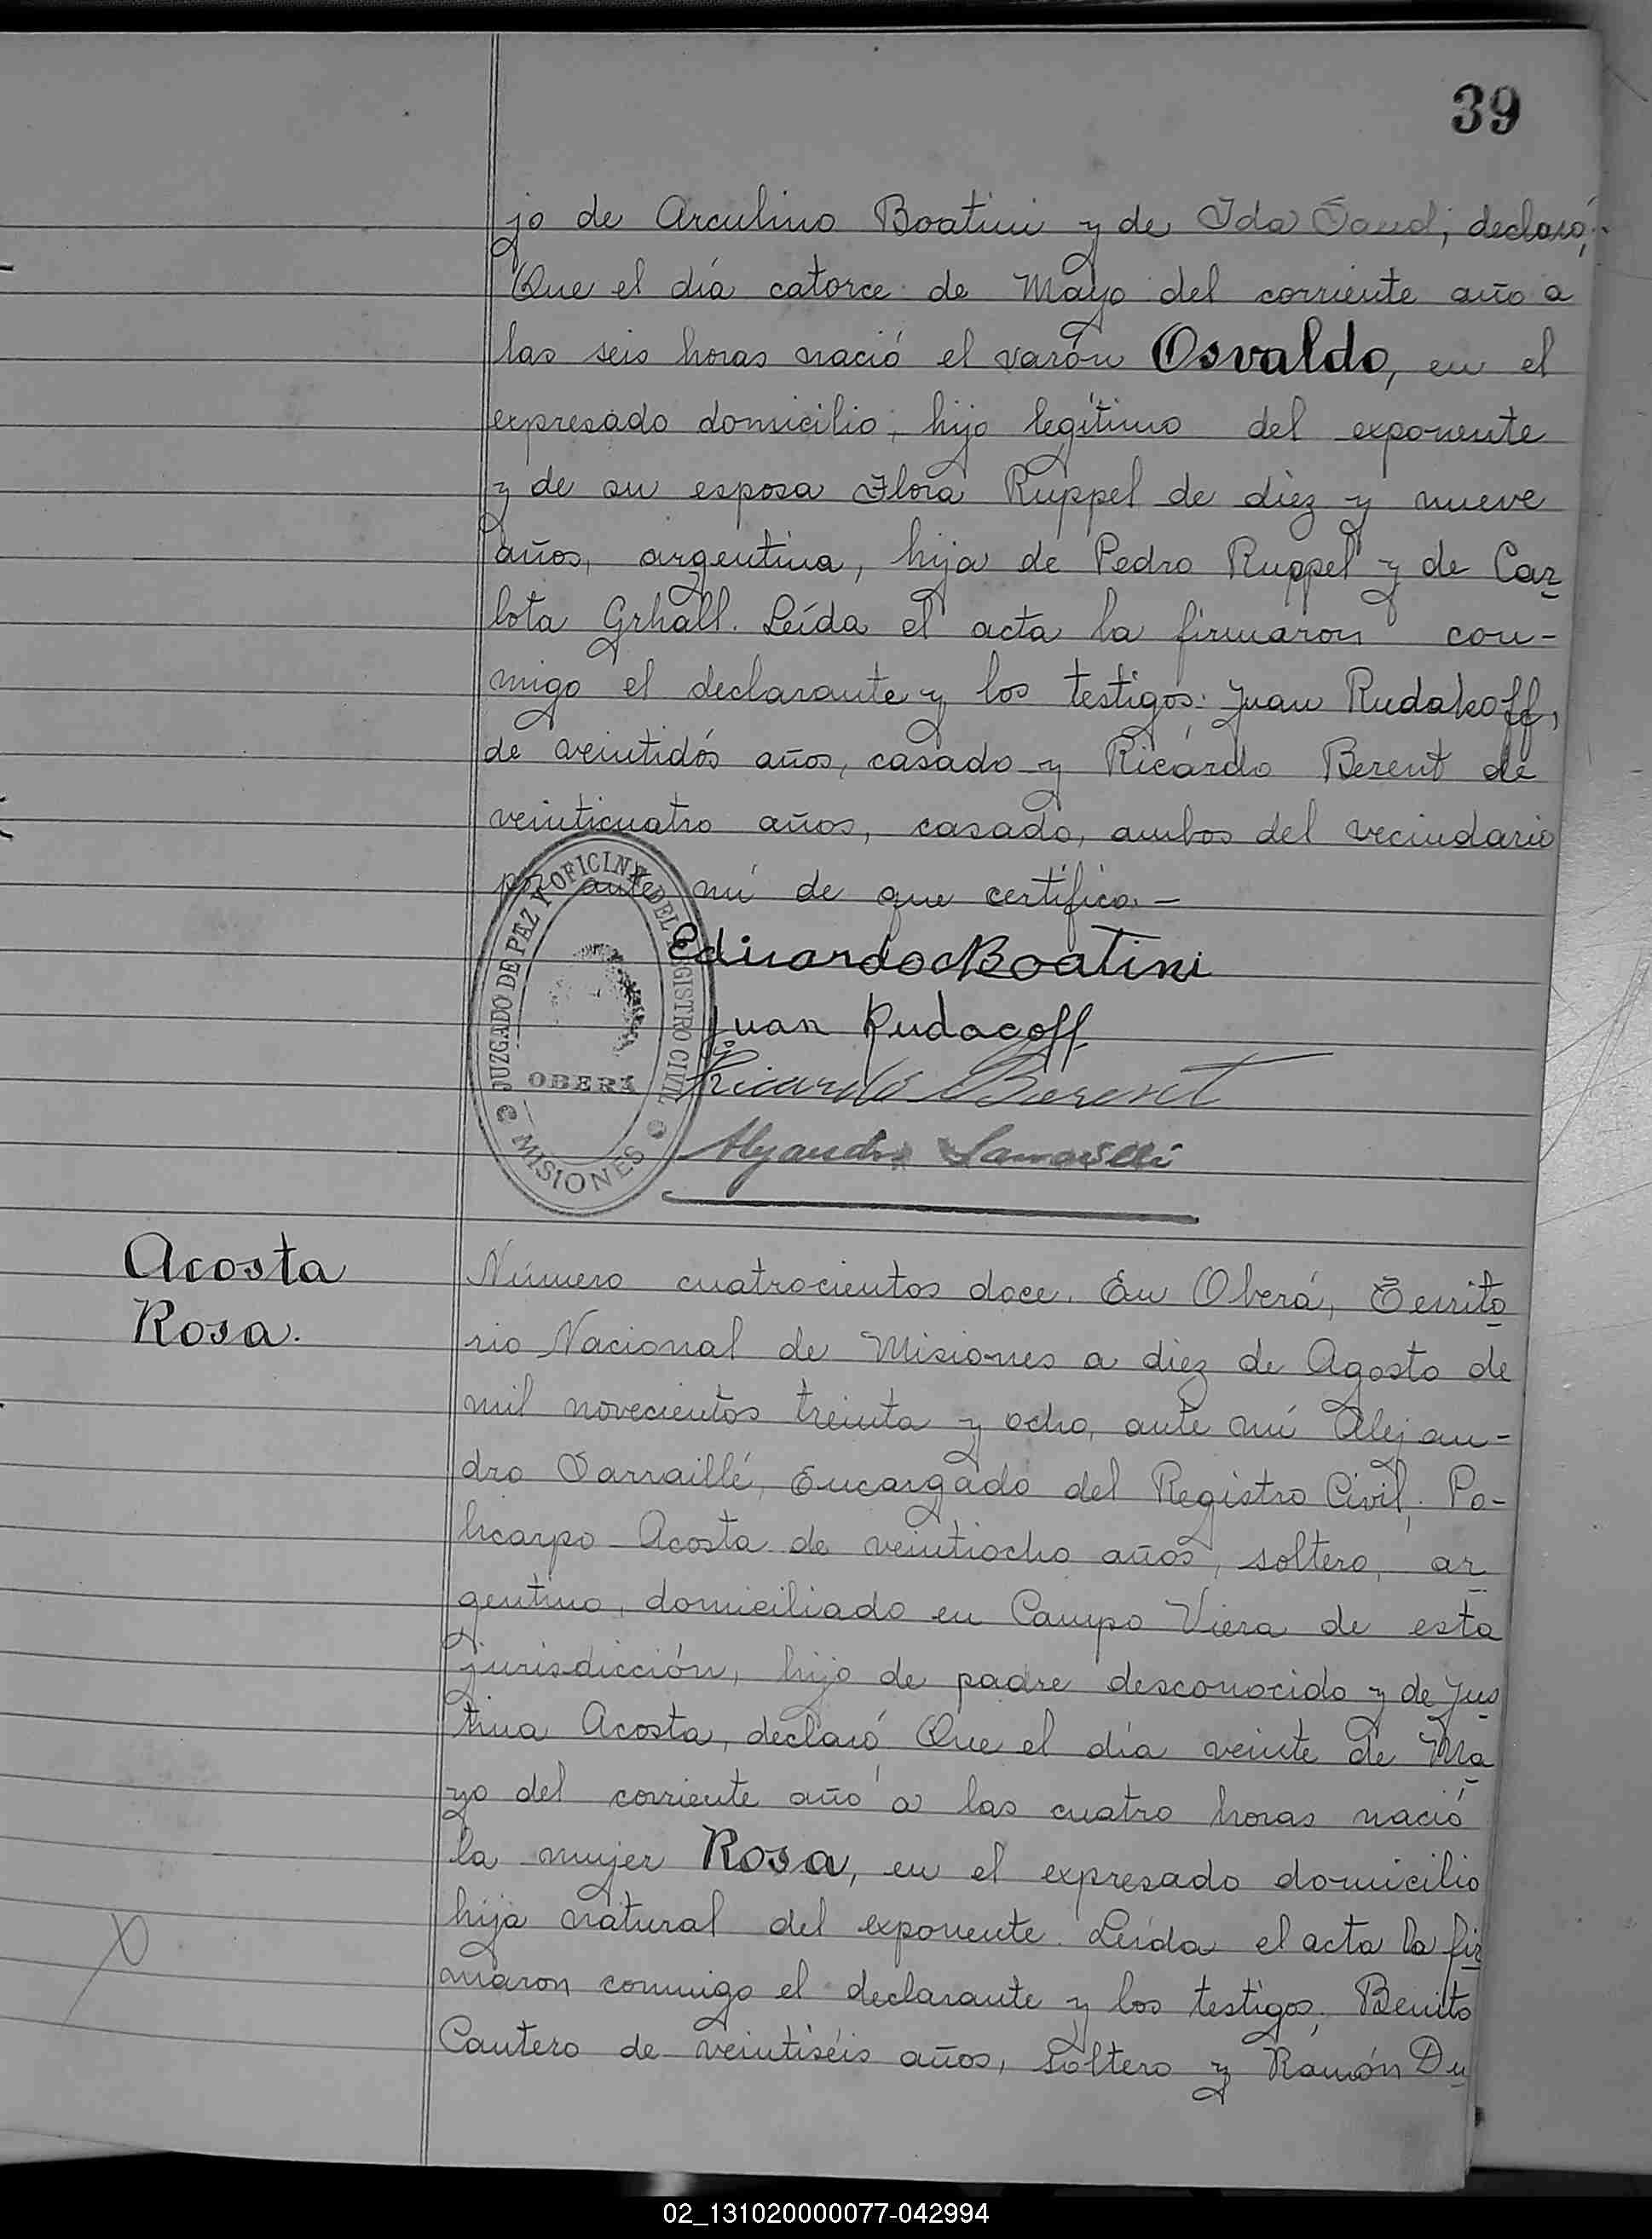 39
jo de Arculino Boatini y de Ida Saud; declaró:
Que el día catorce de Mayo del corriente año a
las seis horas nació el varón Osvaldo, en el
expresado domicilio, hijo legítimo del exponente
y de su esposa Flora Ruppel de diez y nueve
años, argentina, hija de Pedro Ruppel y de Car
lota Grhall. Leída el acta la firmaron con-
migo el declarante y los testigos: Juan Rudakoff,
de veintidós años, casado y Ricardo Berent de
veinticuatro años, casado, ambos del vecindario
por ante mí de que certifico.-
JUZGADO DE PAZ Y OFICINA DEL REGISTRO CIVIL
OBERÁ
MISIONES
Eduardo Boatini
Juan Rudacoff
Ricardo Berent
Alejandro
Acosta
Rosa.
Número cuatrocientos doce. En Oberá, Territo
rio Nacional de Misiones a diez de Agosto de
mil novecientos treinta y ocho, ante mí Alejan-
dro Sarraillé, Encargado del Registro Civil, Po-
licarpo Acosta de veintiocho años, soltero, ar
gentino, domiciliado en Campo Viera de esta
jurisdicción, hijo de padre desconocido y de Jus
tina Acosta, declaró Que el día veinte de Ma
yo del corriente año a las cuatro horas nació
la mujer Rosa, en el expresado domicilio
hija natural del exponente. Leída el acta la fir
maron conmigo el declarante y los testigos: Benito
Cantero de veintiséis años, soltero y Ramón Du
02_131020000077-042994